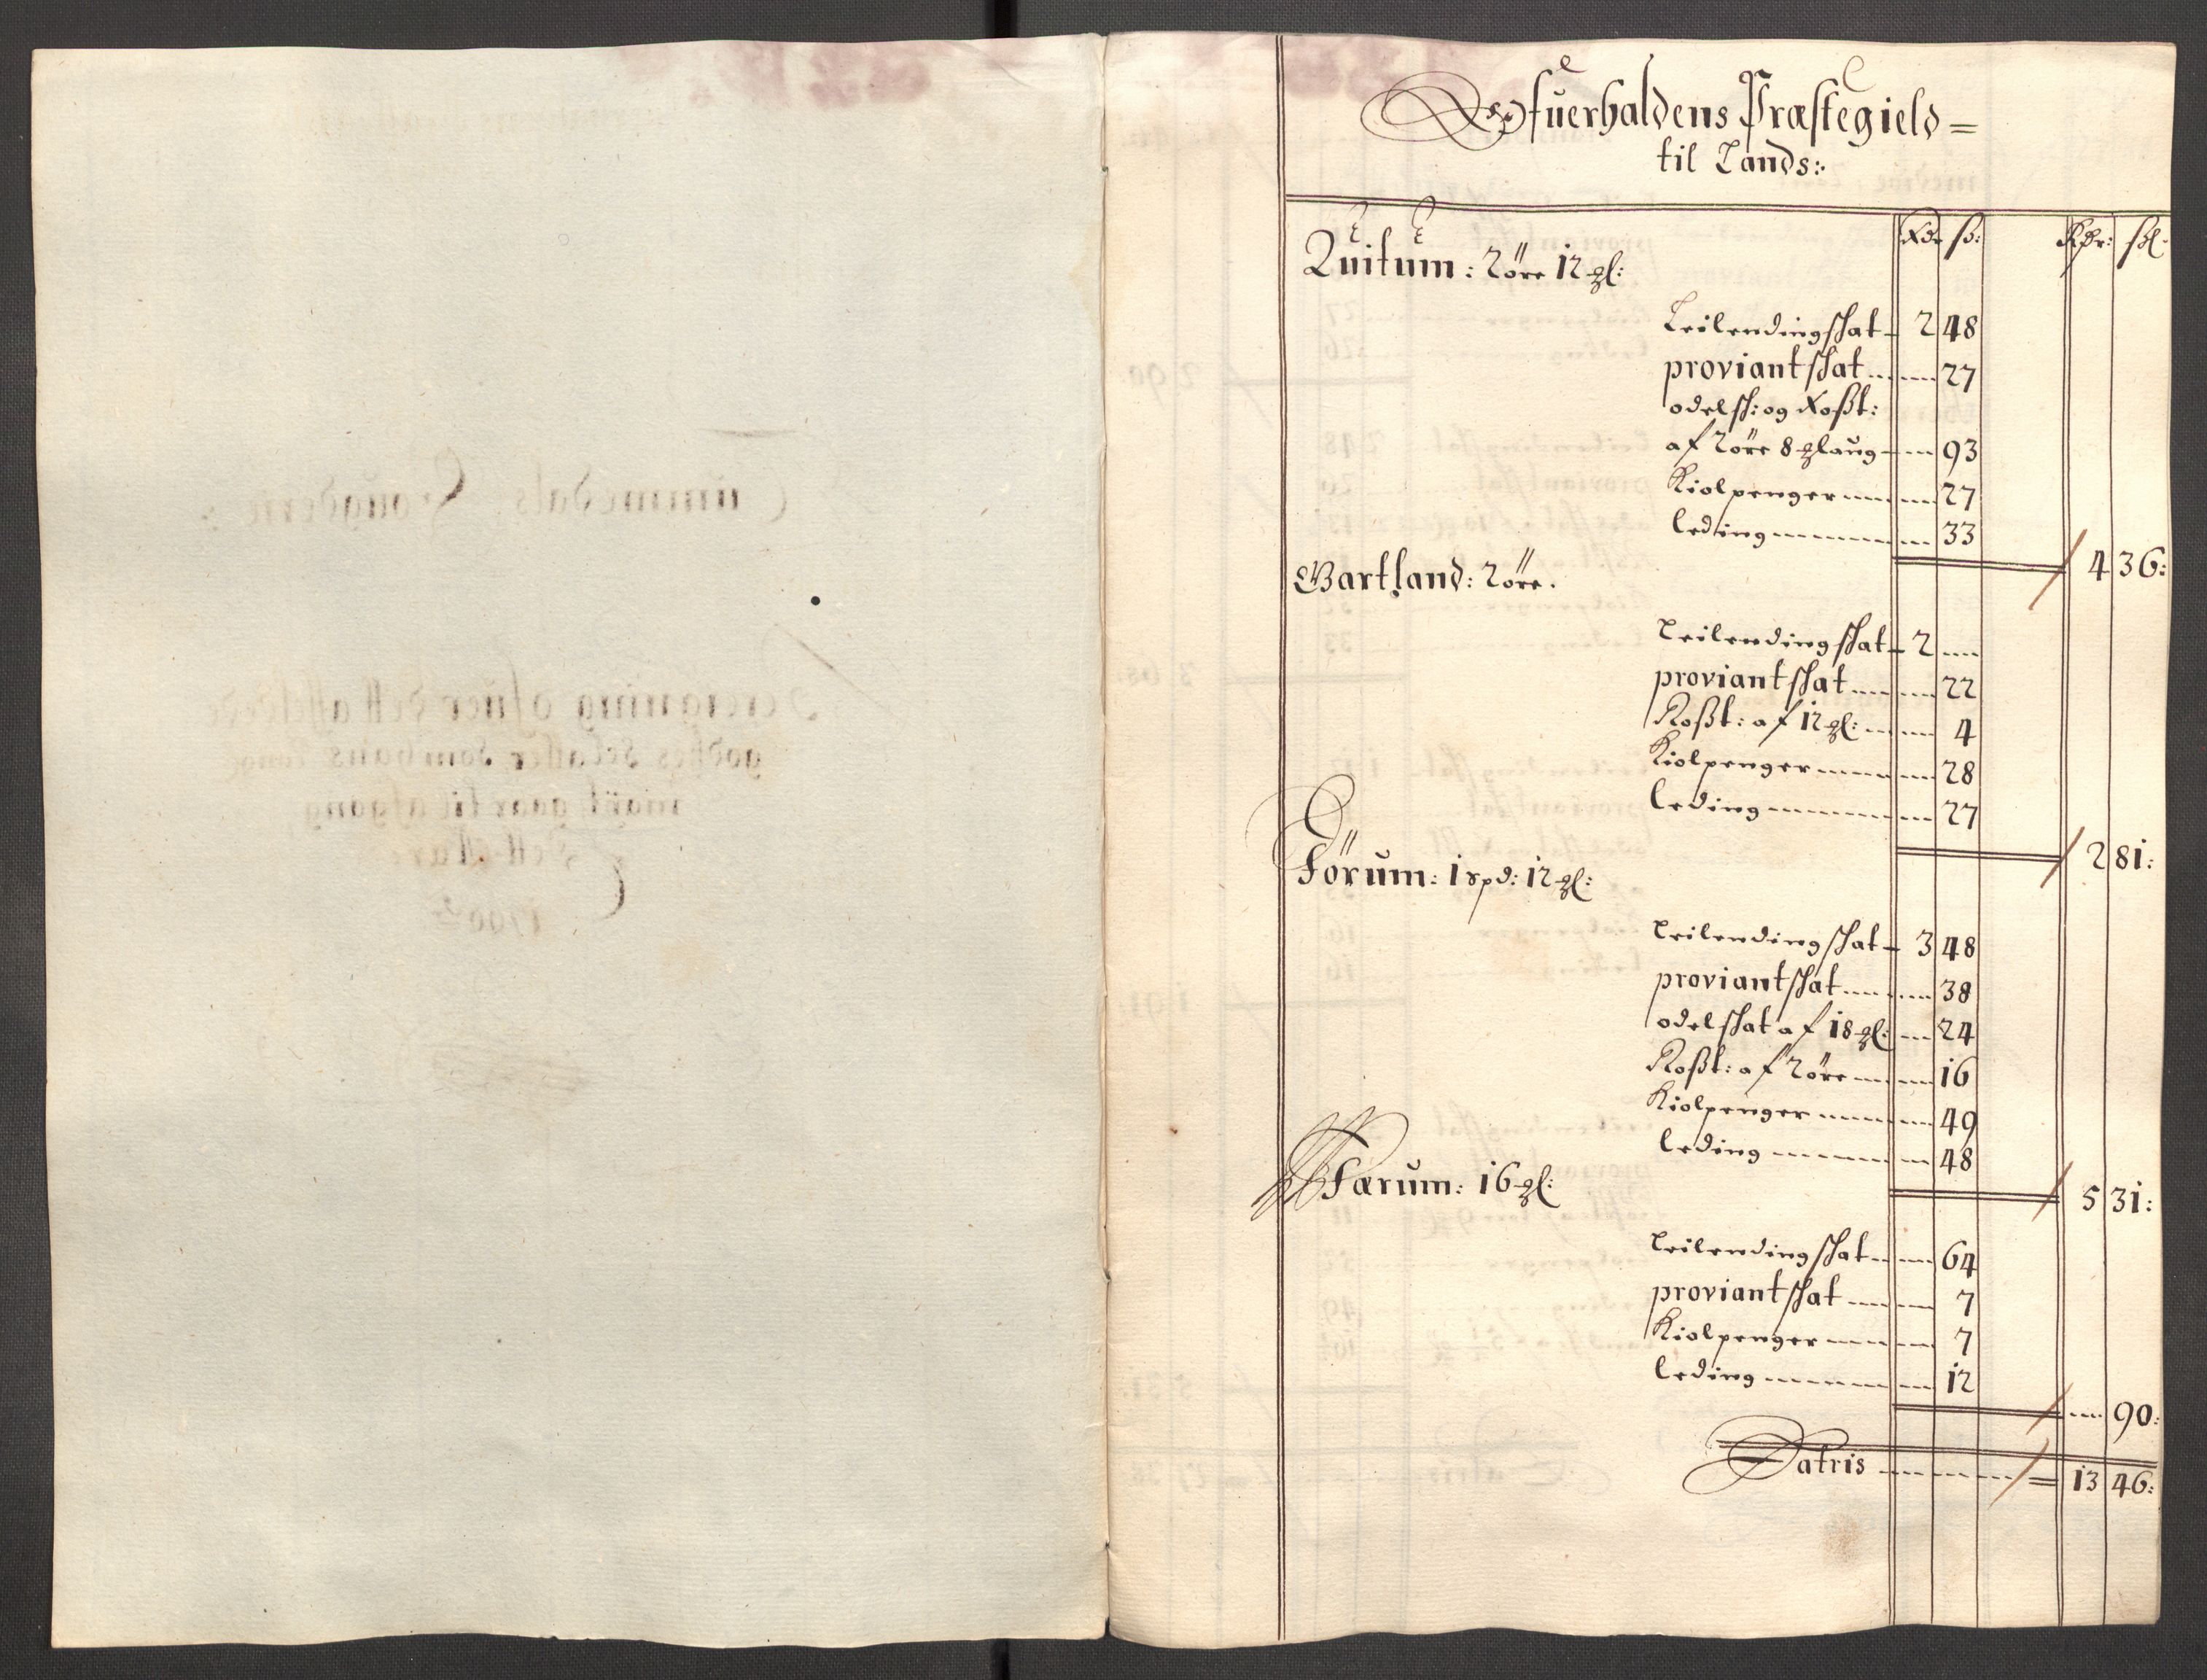 Ofuerhaldens Præstegield =
til Lands:
Rdr ß: Rdr: ßl:
Quitum: 2 öre 12 gl:
Leilendingschat 2 48
proviantschat 27
odelsk: og Roßt:
af 2 öre 8 glaug 93
Kiolpenger 27
leding 33
4 36:
Gartland: 2 öre.
Leilendingschat 2
proviantschat 22
Roßt: af 12 gl: 4
Kiolpenger 28
leding 27
2 81:
Förum: 1 spd: 12 gl:
Leilendingschat 3 48
proviantschat 38
odelschat af 18 gl: 24
Roßt: af 2 öre 16
Kiolpenger 49
leding 48
5 31:
Færum: 16 gl:
Leilendingschat 64
proviantschat 7
Kiolpenger 7
leding 12
90:
Latris = 13 46: